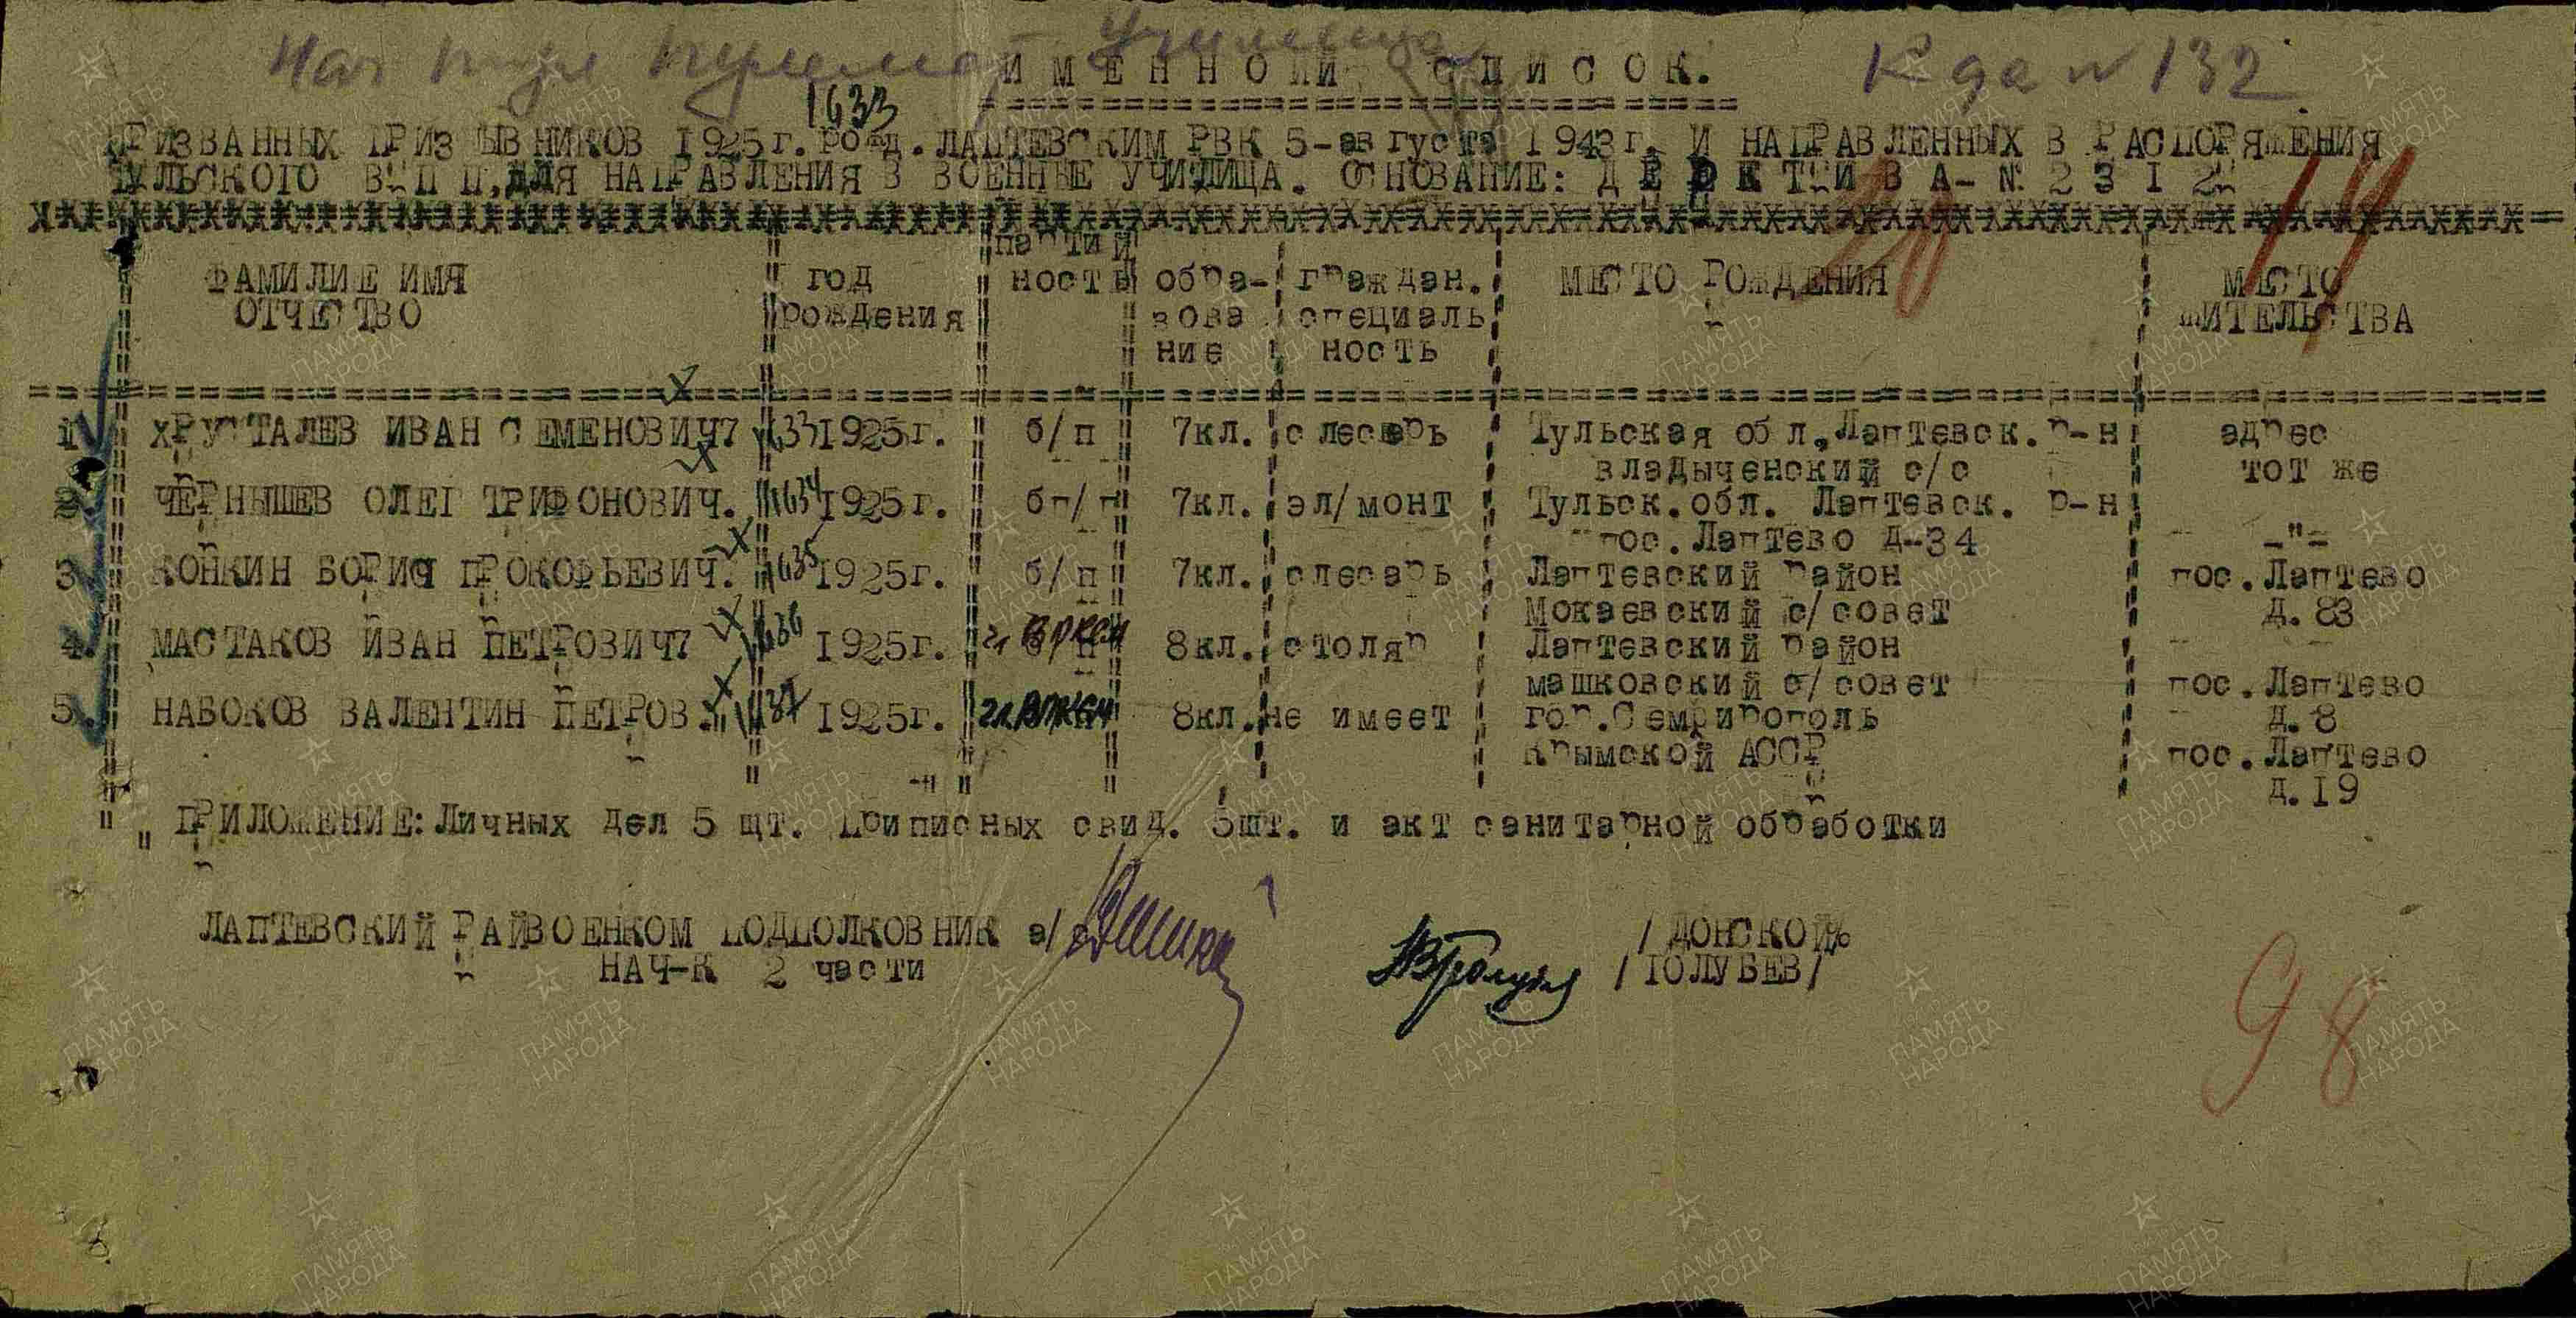 К де № 132
ИМЕННОЙ СПИСОК.
1633
ПРИЗВАННЫХ ПРИЗЫВНИКОВ 1925г. рожд. ЛАПТЕВСКИМ РВК 5-августа 1943г. И НАПРАВЛЕННЫХ В РАСПОРЯЖЕНИЯ
ТУЛЬСКОГО ВПП, ДЛЯ НАПРАВЛЕНИЯ В ВОЕННЫЕ УЧИЛИЩА. ОСНОВАНИЕ: ДЕРКТИВА- № 2312
ФАМИЛИЕ ИМЯ ОТЧЕСТВО
год рождения
партийность
образование
граждан. специальность
МЕСТО РОЖДЕНИЯ
МЕСТО ЖИТЕЛЬСТВА
1 ХРУСТАЛЕВ ИВАН СЕМЕНОВИЧ7 633 1925г. б/п 7кл. слесарь Тульская обл, Лаптевск. р-н адрес
владыченский с/с тот же
2 ЧЕРНЫШЕВ ОЛЕГ ТРИФОНОВИЧ. 1634 1925г. бп/п 7кл. эл/монт Тульск. обл. Лаптевск. р-н
пос. Лаптево Д-34 -"-
3 КОНКИН БОРИС ПРОКОФЬЕВИЧ. 1635 1925г. б/п 7кл. слесарь Лаптевский район пос. Лаптево
Мокаевский с/совет д. 83
4 МАСТАКОВ ИВАН ПЕТРОВИЧ7 636 1925г. чл ВЛКСМ 8кл. столяр Лаптевский район
машковский с/совет пос. Лаптево
5 НАБОКОВ ВАЛЕНТИН ПЕТРОВ. 37 1925г. чл ВЛКСМ 8кл. не имеет гор. Семфирополь д. 8
Крымской АССР пос. Лаптево
д. 19
ПРИЛОЖЕНИЕ: Личных дел 5 щт. Приписных свид. 5шт. и акт санитарной обработки
ЛАПТЕВСКИЙ РАЙВОЕНКОМ ПОДПОЛКОВНИК а/ /ДОНСКОЙ%
НАЧ-К 2 части /ГОЛУБЕВ/
98
ПАМЯТЬ НАРОДА